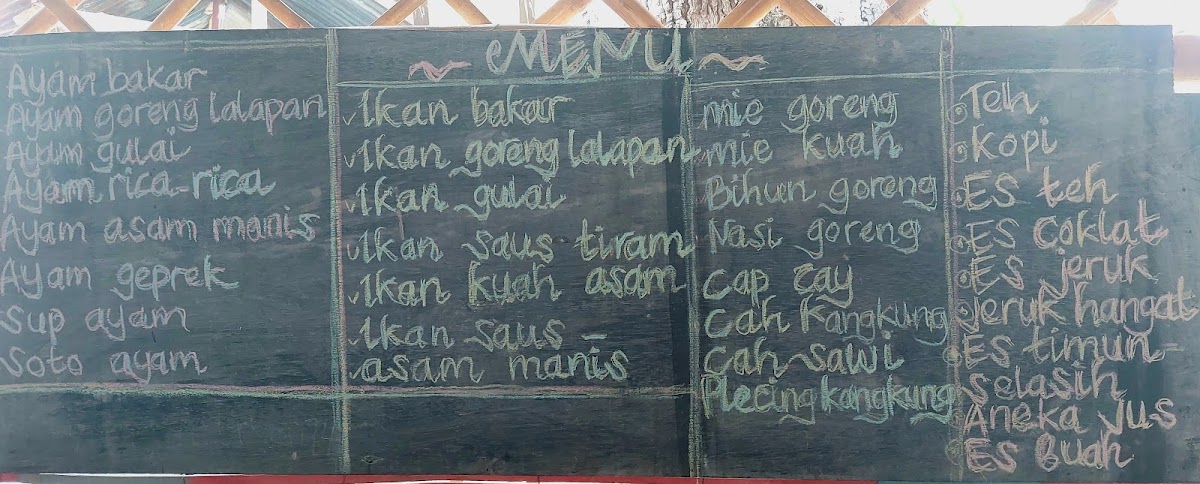 MENU
Ayam bakar
Ayam goreng lalapan
Ayam gulai
Ayam rica-rica
Ayam asam manis
Ayam geprek
Sup ayam
Soto ayam
Ikan bakar
Ikan goreng lalapan
Ikan gulai
Ikan saus tiram
Ikan kuah asam
Ikan saus -
asam manis
mie goreng
mie kuah
Bihun goreng
Nasi goreng
Cap cay
Cah Kangkung
Cah sawi
Plecing kangkung
Teh
Kopi
ES teh
ES Coklat
ES jeruk
Jeruk hangat
Es timun-
selasih
Aneka Jus
Es Buah